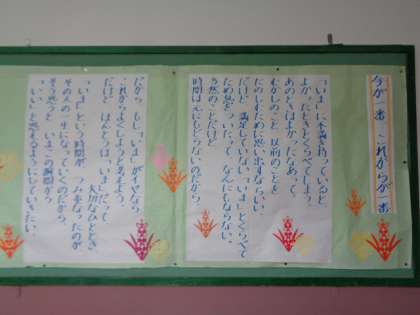 今が一番 これからが一番
「いま」に不満をもっていると
よかったときとくらべてしまう。
あのときはよかったなあ、って。
むかしのこと、以前のことを
たのしむために思い出すならいい。
だけど 満足していない「いま」とくらべて
ため息をついたって なんにもならない。
当然のことだけど
時間は元にもどらないのだから。
だから もし「いま」がイヤなら
これからよくしようと考えよう。
だけど ほんとうは「いま」だって
大切なひととき
「いま」という時間が つみ重なったのが
その人の一生になっていくのだから。
そう思うと いま、この瞬間から
「いい」と思えるようにしていきたい。